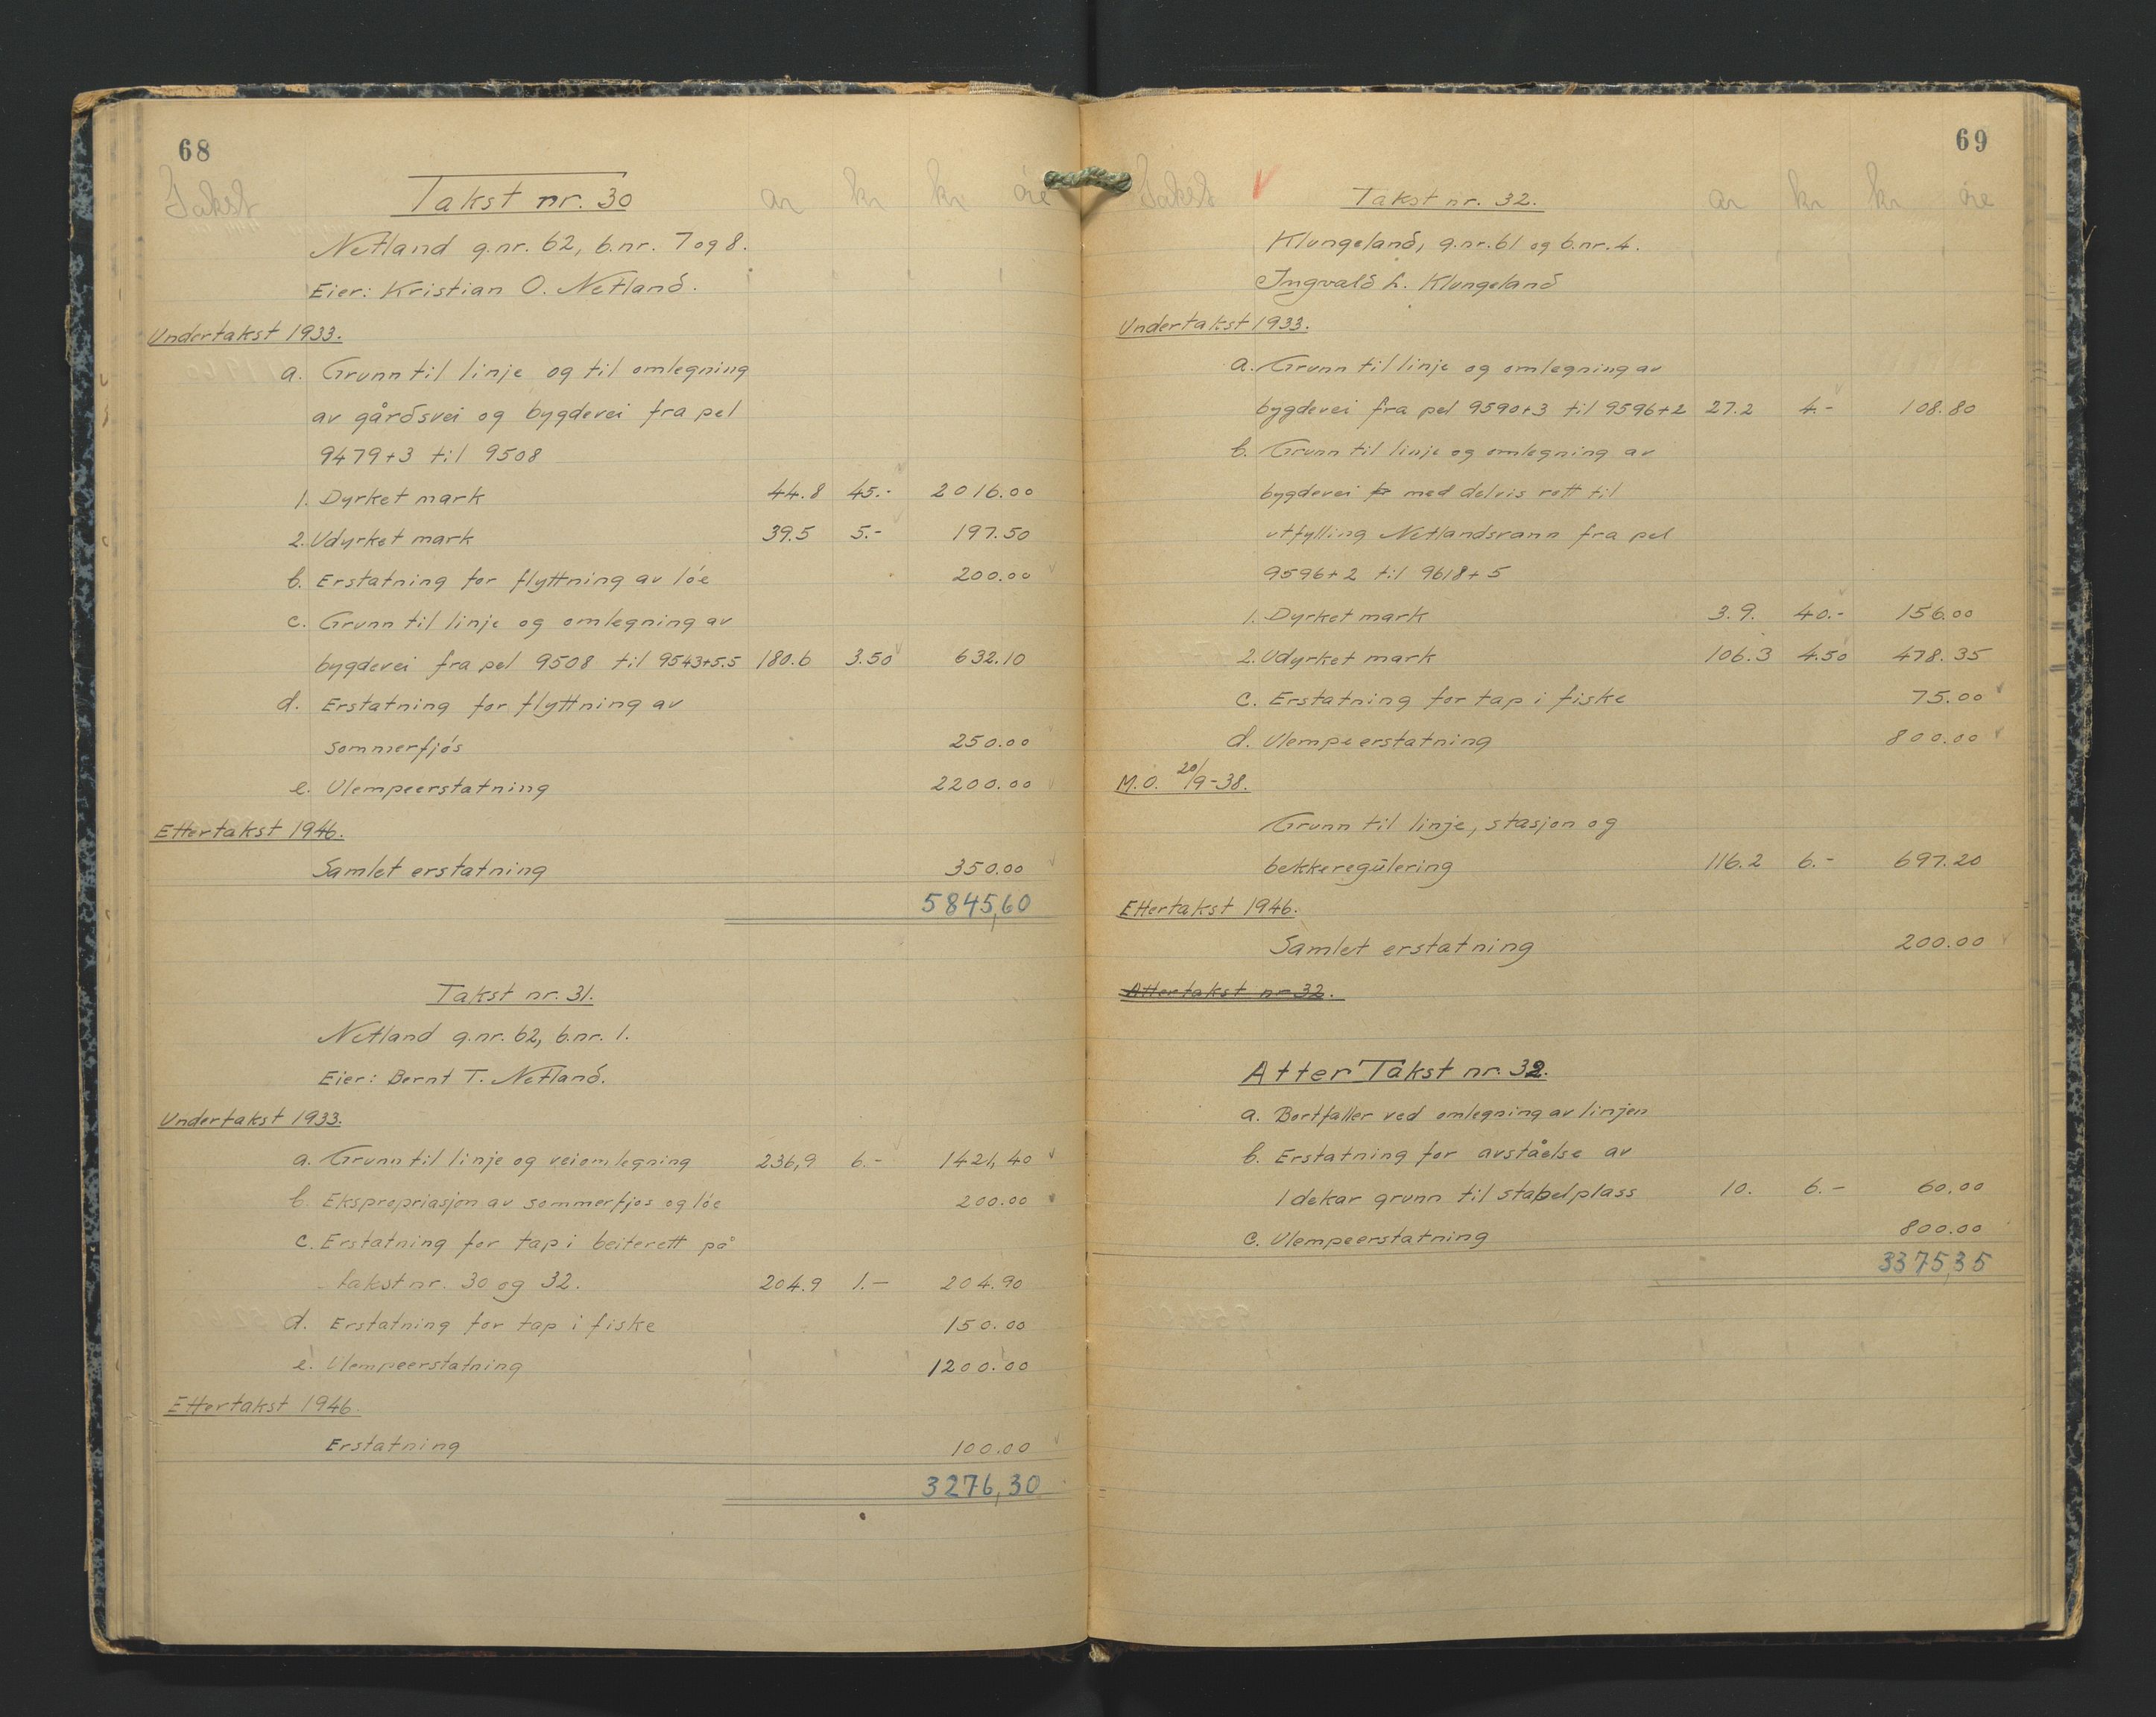 68
Takst
Takst nr. 30
ar kr kr øre
Netland g.nr. 62, b.nr. 7 og 8.
Eier: Kristian O. Netland.
Undertakst 1933.
a. Grunn til linje og til omlegning
av gårdsvei og bygdevei fra pel
9479+3 til 9508
1. Dyrket mark 44.8 45.- 2016.00
2. Udyrket mark 39.5 5.- 197.50
b. Erstatning for flyttning av løe 200.00
c. Grunn til linje og omlegning av
bygdevei fra pel 9508 til 9543+5.5 180.6 3.50 632.10
d. Erstatning for flyttning av
sommerfjøs 250.00
e. Ulempeerstatning 2200.00
Ettertakst 1946.
Samlet erstatning 350.00
5845,60
Takst nr. 31.
Netland g.nr. 62, b.nr. 1.
Eier: Bernt T. Netland.
Undertakst 1933.
a. Grunn til linje og veiomlegning 236,9 6.- 1421,40
b. Ekspropriasjon av sommerfjøs og løe 200.00
c. Erstatning for tap i beiterett på
takst nr. 30 og 32. 204.9 1.- 204.90
d. Erstatning for tap i fiske 150.00
e. Ulempeerstatning 1200.00
Ettertakst 1946.
Erstatning 100.00
3276,30
69
Takst
Takst nr. 32.
ar kr kr øre
Klungeland, g.nr. 61 og b.nr. 4.
Ingvald L. Klungeland
Undertakst 1933.
a. Grunn til linje og omlegning av
bygdevei fra pel 9590+3 til 9596+2 27.2 4.- 108.80
b. Grunn til linje og omlegning av
bygdevei med delvis rett til
utfylling Netlandsvann fra pel
9596+2 til 9618+5
1. Dyrket mark 3.9. 40.- 156.00
2. Udyrket mark 106.3 4.50 478.35
c. Erstatning for tap i fiske 75.00
d. Ulempeerstatning 800.00
M.O. 20/9-38.
Grunn til linje, stasjon og
bekkeregulering 116.2 6.- 697.20
Ettertakst 1946.
Samlet erstatning 200.00
Attertakst nr 32.
Atter Takst nr. 32.
a. Bortfaller ved omlegning av linjen
b. Erstatning for avståelse av
1 dekar grunn til stabelplass 10. 6.- 60,00
c. Ulempeerstatning 800.00
3375,35